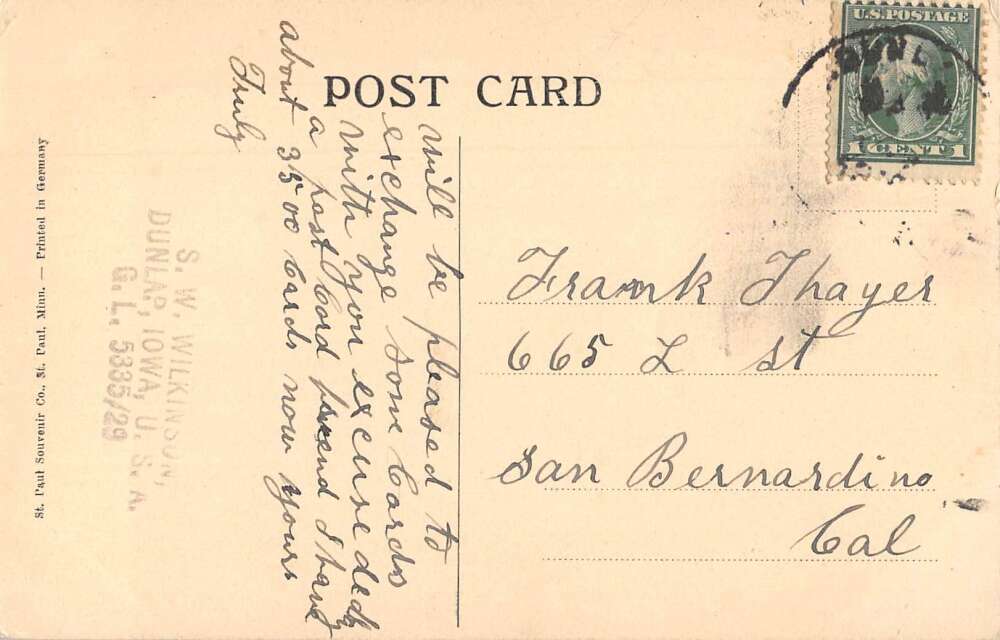 POST CARD
U.S. POSTAGE
1 CENT 1
DUNL
will be pleased to
exchange some Cards
with you excuse
a post Card I have
about 3500 Cards now yours
Truly
Frank Thayer
665 L st
San Bernardino
Cal
S. W. WILKINSON,
DUNLAP, IOWA, U. S. A.
G. L. 5335/29
St. Paul Souvenir Co., St. Paul, Minn. — Printed in Germany